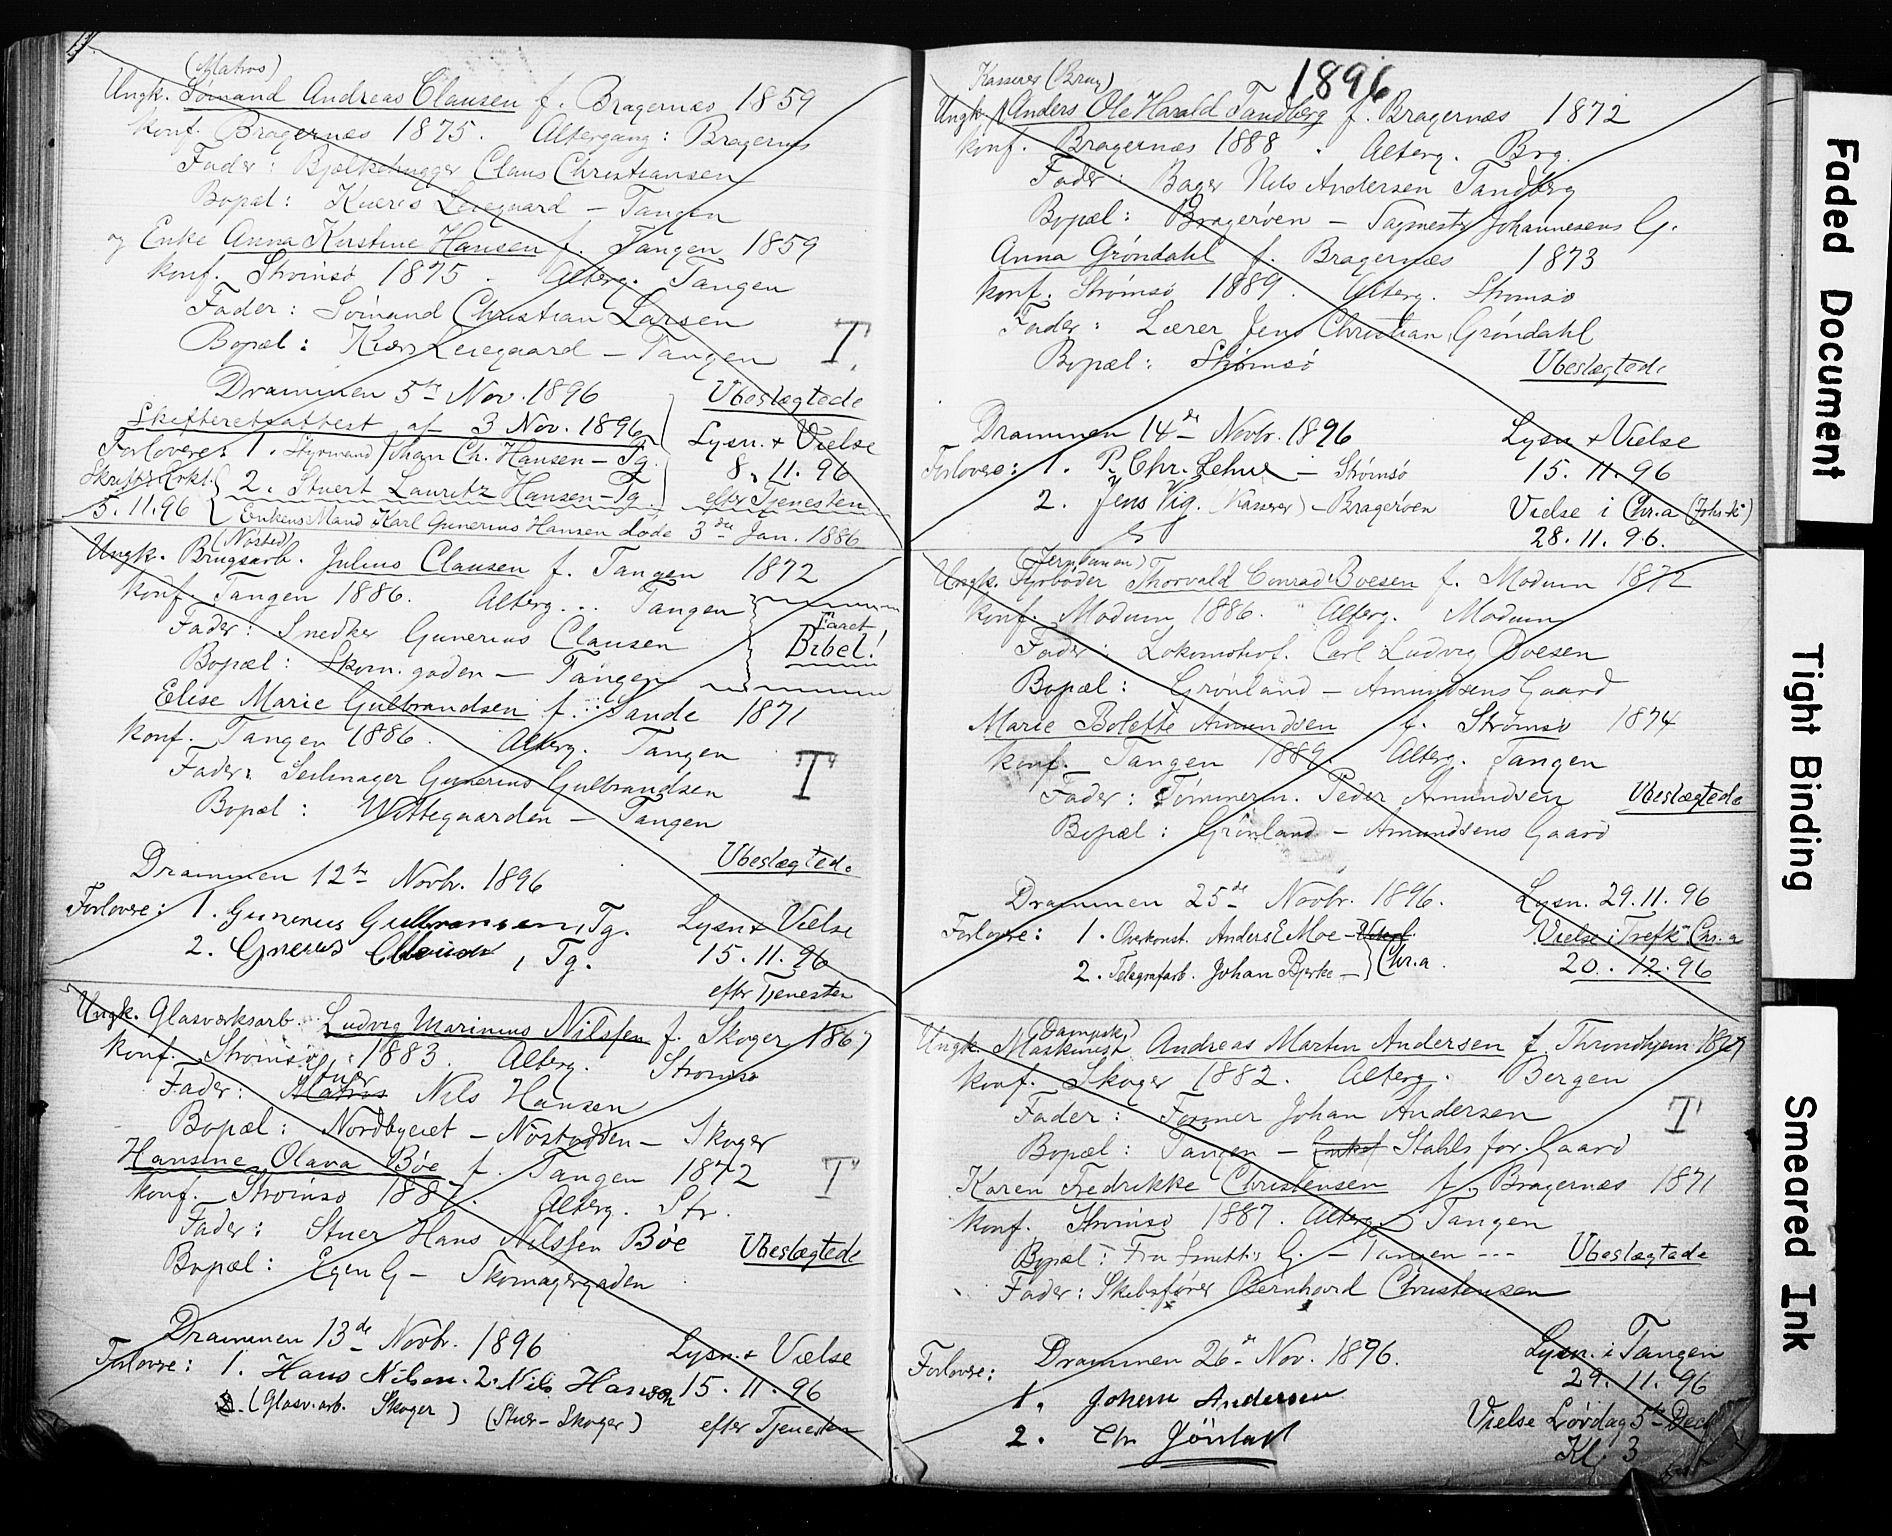 (Matros)
Ungk. Sørnand Andreas Clausen f. Bragernæs 1859
konf. Bragernæs 1875. Altergang: Bragernæs
Fader: Bjælkehugger Claus Christiansen
Bopæl: Kiærs Leiegaard – Tangen
og Enke Anna Kirstine Hansen f. Tangen 1859
konf. Strømsø 1875 – Alterg. Tangen
Fader: Sørnand Christian Larsen
Bopæl: Kiærs Leiegaard – Tangen T.
Drammen 5te Nov. 1896 Ubeslægtede
Skifteretsattest af 3 Nov. 1896 Lysn. + Vielse
Forlovere: 1. Styrmand Johan Ch. Hansen – Tg. 8. 11. 96
2. Stuert Lauritz Hansen – Tg. efter Tjenesten
5.11.96 Enkens Mand Karl Gunerius Hansen døde 3die Jan. 1886
(Nøsted)
Ungk. Brugsarb. Julius Clausen f. Tangen 1872
konf. Tangen 1886. Alterg... Tangen
Faaet Bibel!
Fader: Snedker Gunerius Clausen
Bopæl: Skom. gaden – Tangen
Elise Marie Gulbrandsen f. Sande 1871
konf. Tangen 1886. Alterg. Tangen
Fader: Seilmager Gunerius Gulbrandsen T
Bopæl: Wittegaarden – Tangen
Ubeslægtede
Drammen 12te Novbr. 1896
Forlovere: 1. Gunerius Gulbransen, Tg. Lysn + Vielse
2. Gnerius Clausen, Tg. 15. 11. 96
efter Tjenesten
Ungk. Glasværksarb. Ludvig Marinius Nilssen f. Skoger 1867
konf. Strømsø, 1883. Alterg. Strømsø
Stuer
Fader: Matros Nils Hansen
Bopæl: Nordbyeiet – Nøstodden – Skoger
Hansine Olava Bøe f. Tangen 1872 T
konf. Strømsø 1887. Alterg. Str.
Fader: Stuer Hans Nilssen Bøe Ubeslægtede
Bopæl: Egen G – Skomagergaden
Drammen 13de Novbr. 1896 Lysn. + Vielse
Forlovere: 1. Hans Nilsen. 2. Nils Hansen 15. 11. 96
(Glasv. arb. Skoger) (Stuer – Skoger) efter Tjenesten
1896
Kasserer (Brag)
Ungk. Anders Ole Harald Tandberg f. Bragernæs 1872
konf. Bragernæs 1888. Alterg. Brg.
Fader: Bager Nils Andersen Tandberg
Bopæl: Bragerøen – Sagmester Johannesens G.
Anna Grøndahl f. Bragernæs 1873
konf. Strømsø 1889. Alterg. Strømsø
Fader: Lærer Jens Christian Grøndahl
Bopæl: Strømsø Ubeslægtede
Drammen 14de Novbr. 1896 Lysn + Vielse
Forlovere: 1. P. Chr. Lehne – Strømsø 15. 11. 96
2. Jens Vig. (Kasserer) – Bragerøen Vielse i Chr.a (Johs-k)
28. 11. 96.
(Jernbanen)
Ungk. Fyrbøder Thorvald Conrad Boesen f. Modum 1872
konf. Modum 1886. Alterg. Modum
Fader: Lokomotivf. Carl Ludvig Boesen
Bopæl: Grønland – Amundsens Gaard
Marie Bolette Amundsen f. Strømsø 1874
konf. Tangen 1889. Alterg. Tangen
Fader: Tømmerm. Peder Amundsen Ubeslægtede
Bopæl: Grønland – Amundsens Gaard
Drammen 25de Novbr. 1896. Lysn. 29. 11. 96
Forlovere: 1. Overkonst. Anders E Moe – Vielse i Trefk. Chr.a
2. Telegrafarb. Johan Bjerke – Chr.a. 20. 12. 96
(Dampsk.)
Ungk. Maskinist Andreas Martin Andersen f. Throndhjem 1867
konf. Skoger 1882. Alterg. Bergen
Fader: Former Johan Andersen T
Bopæl: Tangen – Stahls for. Gaard
Karen Fredrikke Christensen f. Bragernæs 1871
konf. Strømsø 1887. Alterg. Tangen
Bopæl: Fru Smiths G. – Tangen --- Ubeslægtede
Fader: Skibsfører Bernhard Christensen
Drammen 26de Nov. 1896. Lysn. i Tangen
Forlovere: 29. 11. 96
1. Johan Andersen
2. Chr Vielse Lørdag 5te Decbr
Kl. 3
Faded Document
Tight Binding
Smeared Ink